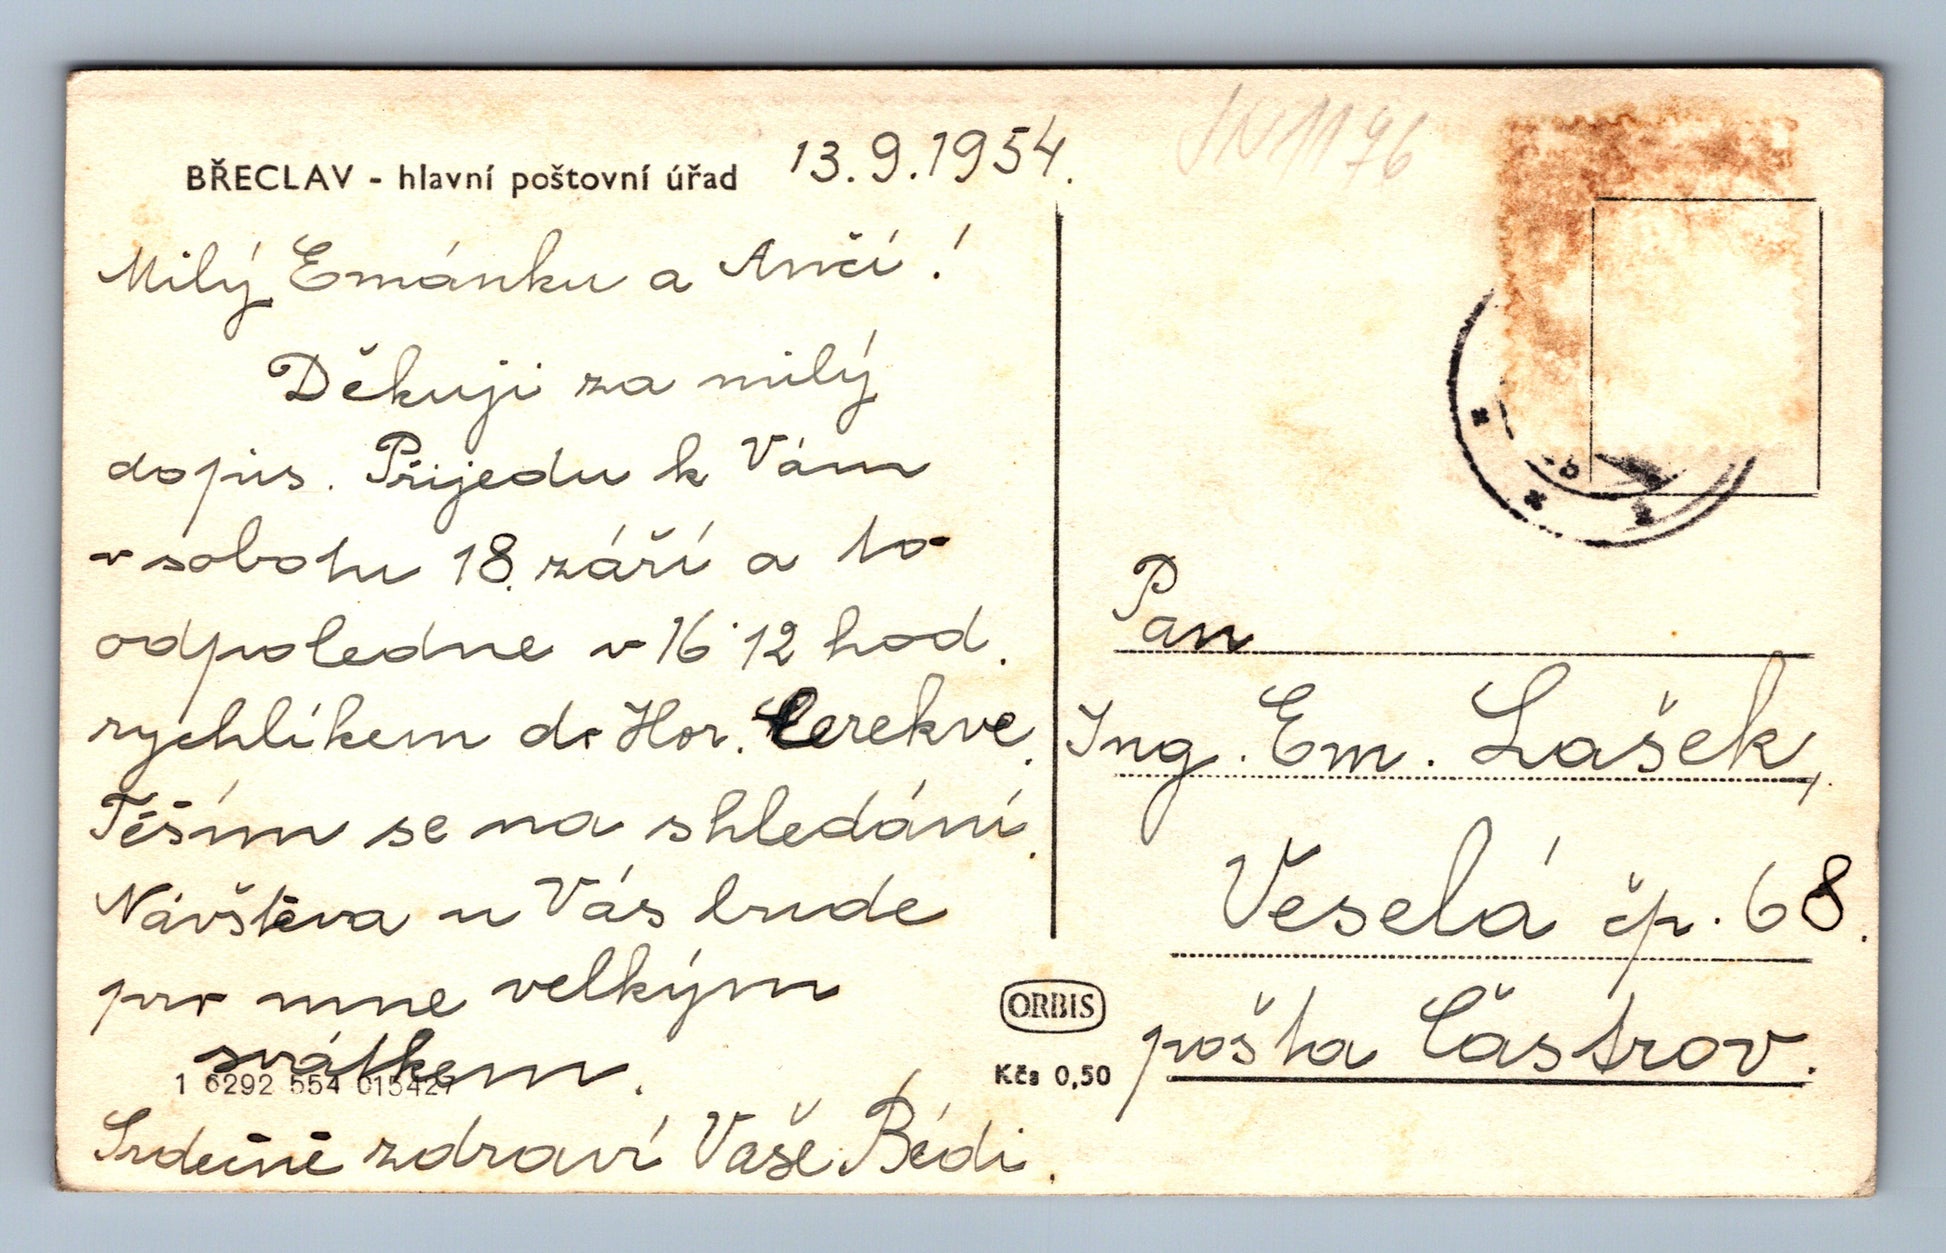 BŘECLAV - hlavní poštovní úřad 13.9.1954.
Milý Emánku a Anči!
Děkuji za milý
dopis. Přijedu k Vám
v sobotu 18. září a to
odpoledne v 16˙12 hod.
rychlíkem do Hor. Cerekve.
Těším se na shledání.
Návštěva u Vás bude
pro mne velkým
svátkem.
1 6292 554 015427
Srdečně zdraví Vaše Bédi.
ORBIS
Kčs 0,50
Pan
Ing. Em. Lašek,
Veselá čp. 68.
pošta Částrov.